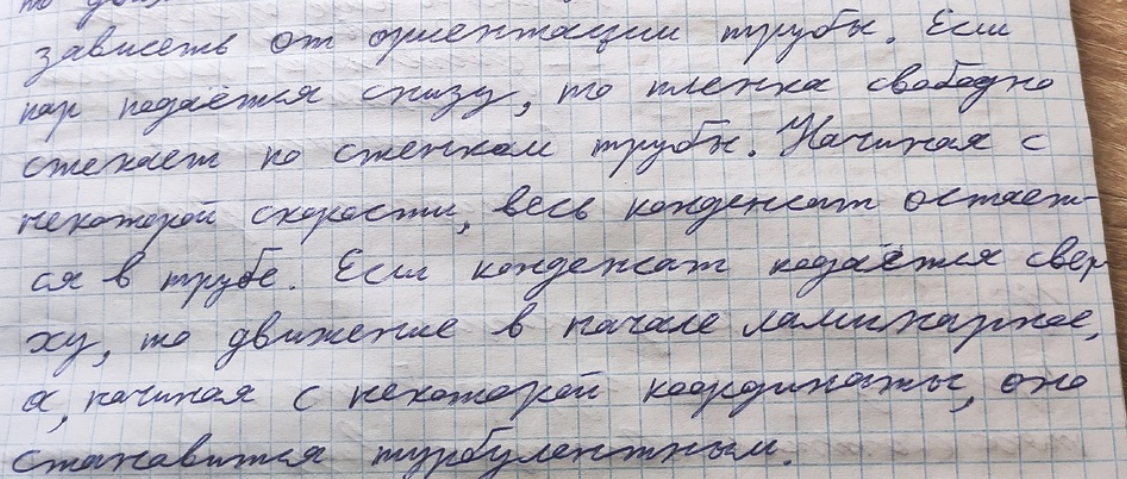 зависеть от ориентации трубы. Если
пар подаётся снизу, то пленка свободно
стекает по стенкам трубы. Начиная с
некоторой скорости, весь конденсат остает-
ся в трубе. Если конденсат подаётся свер-
ху, то движение в начале ламинарное,
а, начиная с некоторой координаты, оно
становится турбулентным.